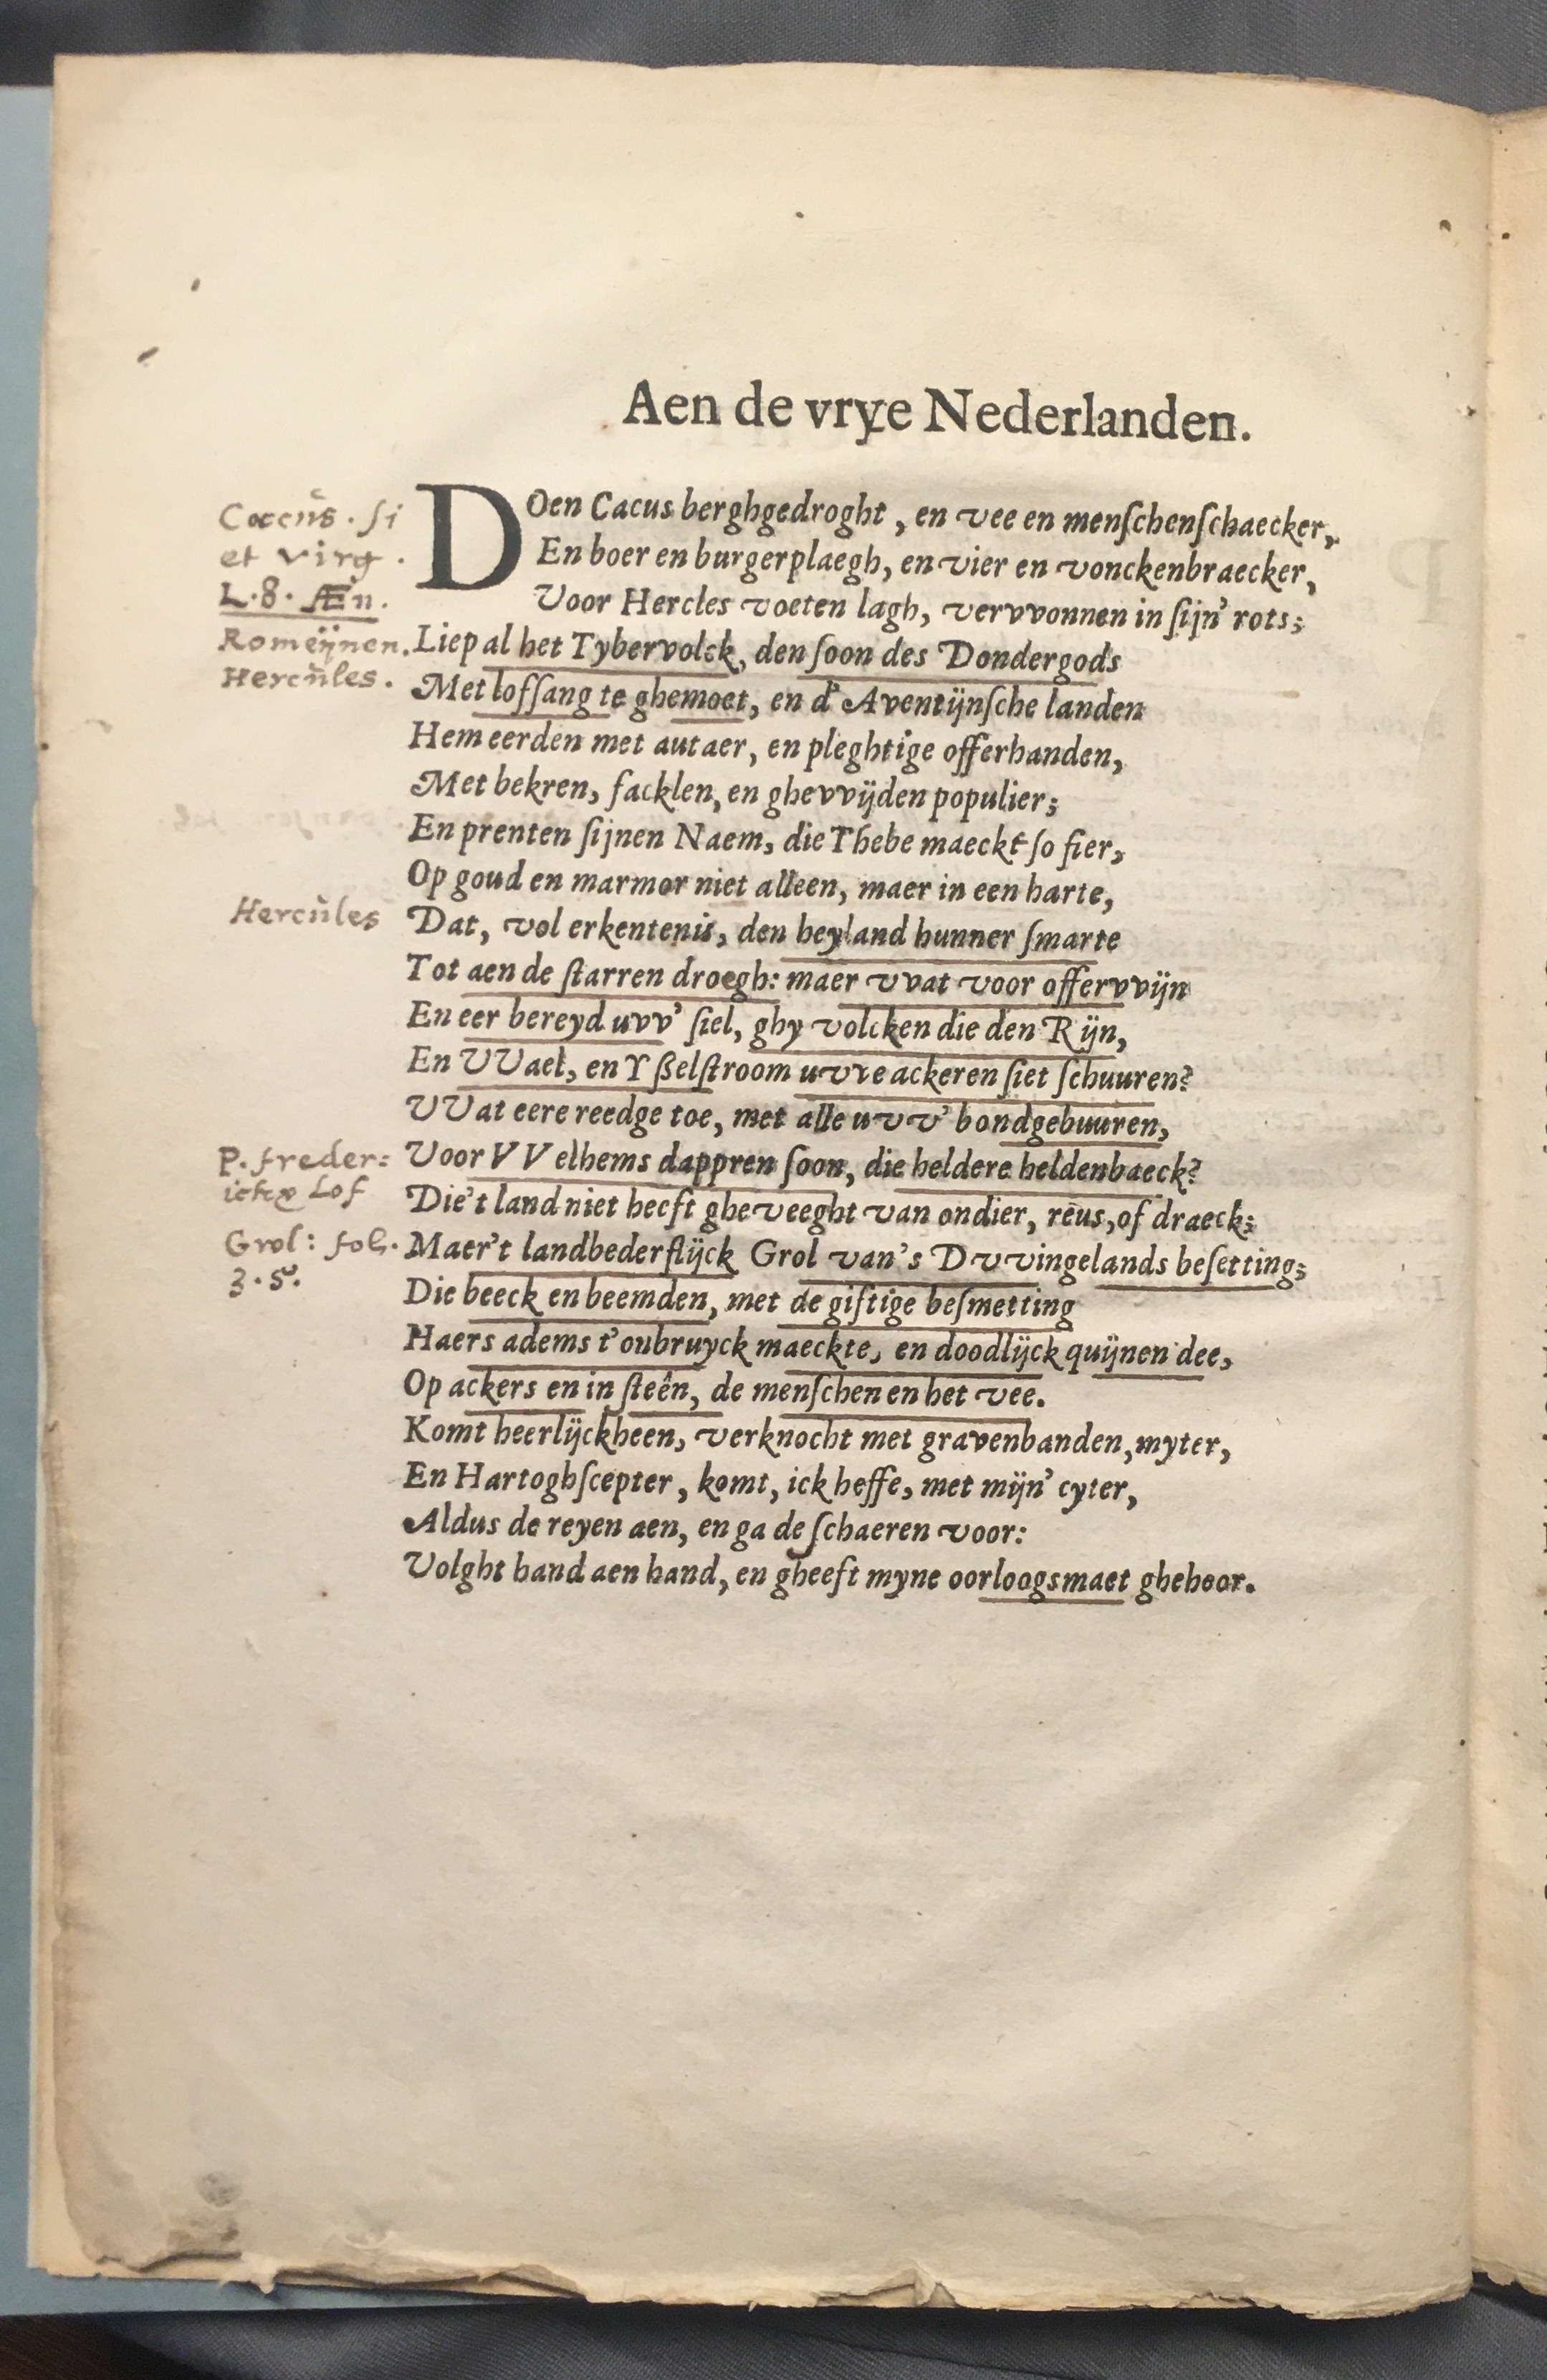 Aen de vrye Nederlanden.
DOen Cacus berghgedroght, en vee en menſchenſchaecker,
En boer en burgerplaegh, en vier en vonckenbraecker,
Voor Hercles voeten lagh, vervvonnen in ſijn' rots;
Liep al het Tybervolck, den ſoon des Dondergods
Met lofſang te ghemoet, en d' Aventijnſche landen
Hem eerden met autaer, en pleghtige offerhanden,
Met bekren, facklen, en ghevvijden populier;
En prenten ſijnen Naem, die Thebe maeckt ſo fier,
Op goud en marmor niet alleen, maer in een harte,
Dat, vol erkentenis, den heyland hunner ſmarte
Tot aen de ſtarren droegh: maer vvat voor offervvijn
En eer bereyd uvv' ſiel, ghy volcken die den Rijn,
En VVael, en Yßelſtroom uvre ackeren ſiet ſchuuren?
VVat eere reedge toe, met alle uvv' bondgebuuren,
Voor VVelhems dappren ſoon, die heldere heldenbaeck?
Die't land niet heeft gheveeght van ondier, reus, of draeck;
Maer't landbederflijck Grol van's Dvvingelands beſetting;
Die beeck en beemden, met de giftige beſmetting
Haers adems t'onbruyck maeckte, en doodlijck quijnen dee,
Op ackers en in ſteên, de menſchen en het vee.
Komt heerlijckheen, verknocht met gravenbanden, myter,
En Hartoghſcepter, komt, ick heffe, met mijn' cyter,
Aldus de reyen aen, en ga de ſchaeren voor:
Volght hand aen hand, en gheeft myne oorloogsmaet ghehoor.
et Virg.
L. 8. Æn.
Romeijnen.
Hercules.
Hercules
P. freder:
Lof
Grol: fol.
3. 5.